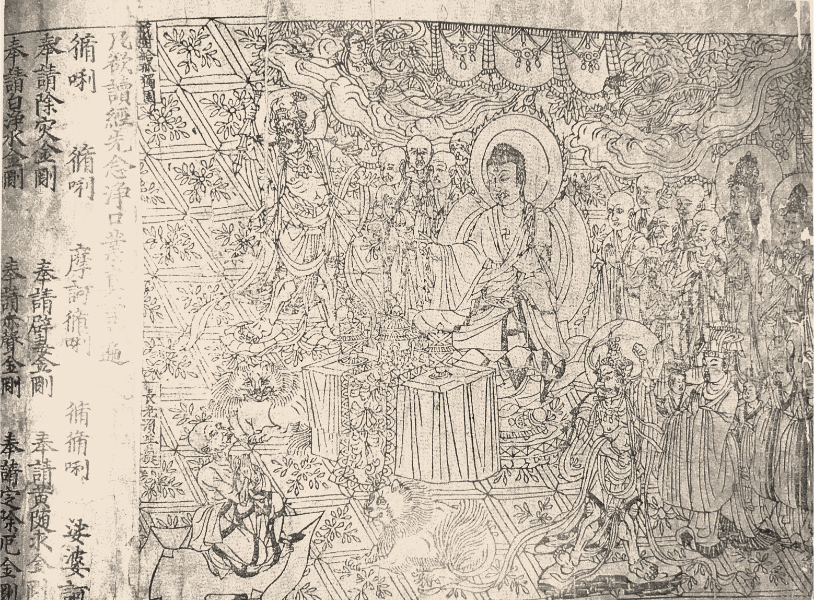 祇樹給孤獨園
長老須菩提
凡欲讀經先念淨口業真言一遍
脩唎 脩唎 摩訶脩唎 脩脩唎 娑婆訶
奉請除灾金剛 奉請辟毒金剛 奉請黄随求金剛
奉請白淨水金剛 奉請赤聲金剛 奉請定除厄金剛